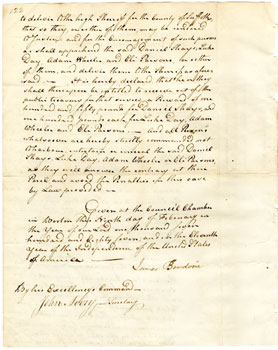 to deliver to the high Sheriff for the County of Suffolk,
that so they, or either of them, may be rendered
to Justice; and for the encouragement of such persons
as shall apprehend the said Daniel Shays, Luke
Day, Adam Wheeler and Eli Parsons, or either
of them, and deliver them to the Sheriff as afore
said — It is hereby declared that he or they
shall thereupon be entitled to receive out of the
public treasury
hundred and fifty pounds for Daniel Shays, and
one hundred pounds each for Luke Day, Adam
Wheeler and Eli Parsons. — And all Persons
whatsoever are hereby strictly commanded not
to harbour, entertain or conceal the said Daniel
Shays, Luke Day, Adam Wheeler or Eli Parsons,
as they will answer the contrary at their
Peril and avoid the Penalties in this case
by Law provided —
Given at the Council Chamber
in Boston this Ninth day of February in
the Year of our Lord one thousand seven
hundred and Eighty seven, and in the Eleventh
Year of the Independence of the United States
of America —
James Bowdoin
By his Excellency's Command —
John Avery Secretary